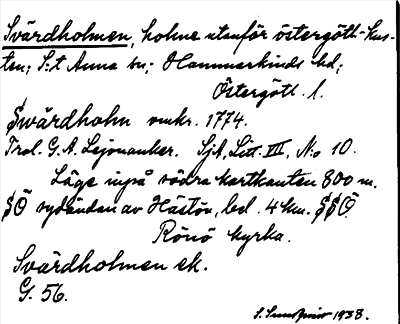 Svärdholmen, holme utanför östergötl-kus-
ten; S:t Anna sn; Hammarkinds hd;
Östergötl. l.
Swärdholm omkr. 1774.
Trol. G. A. Lejonanker. SjA, Litt. VII, N:o 10.
Läge inpå södra kartkanten 800 m.
SÖ sydändan av Hästön, bel. 4 km. SSÖ
Rönö kyrka.
Svärdholmen ek.
G. 56.
1938.